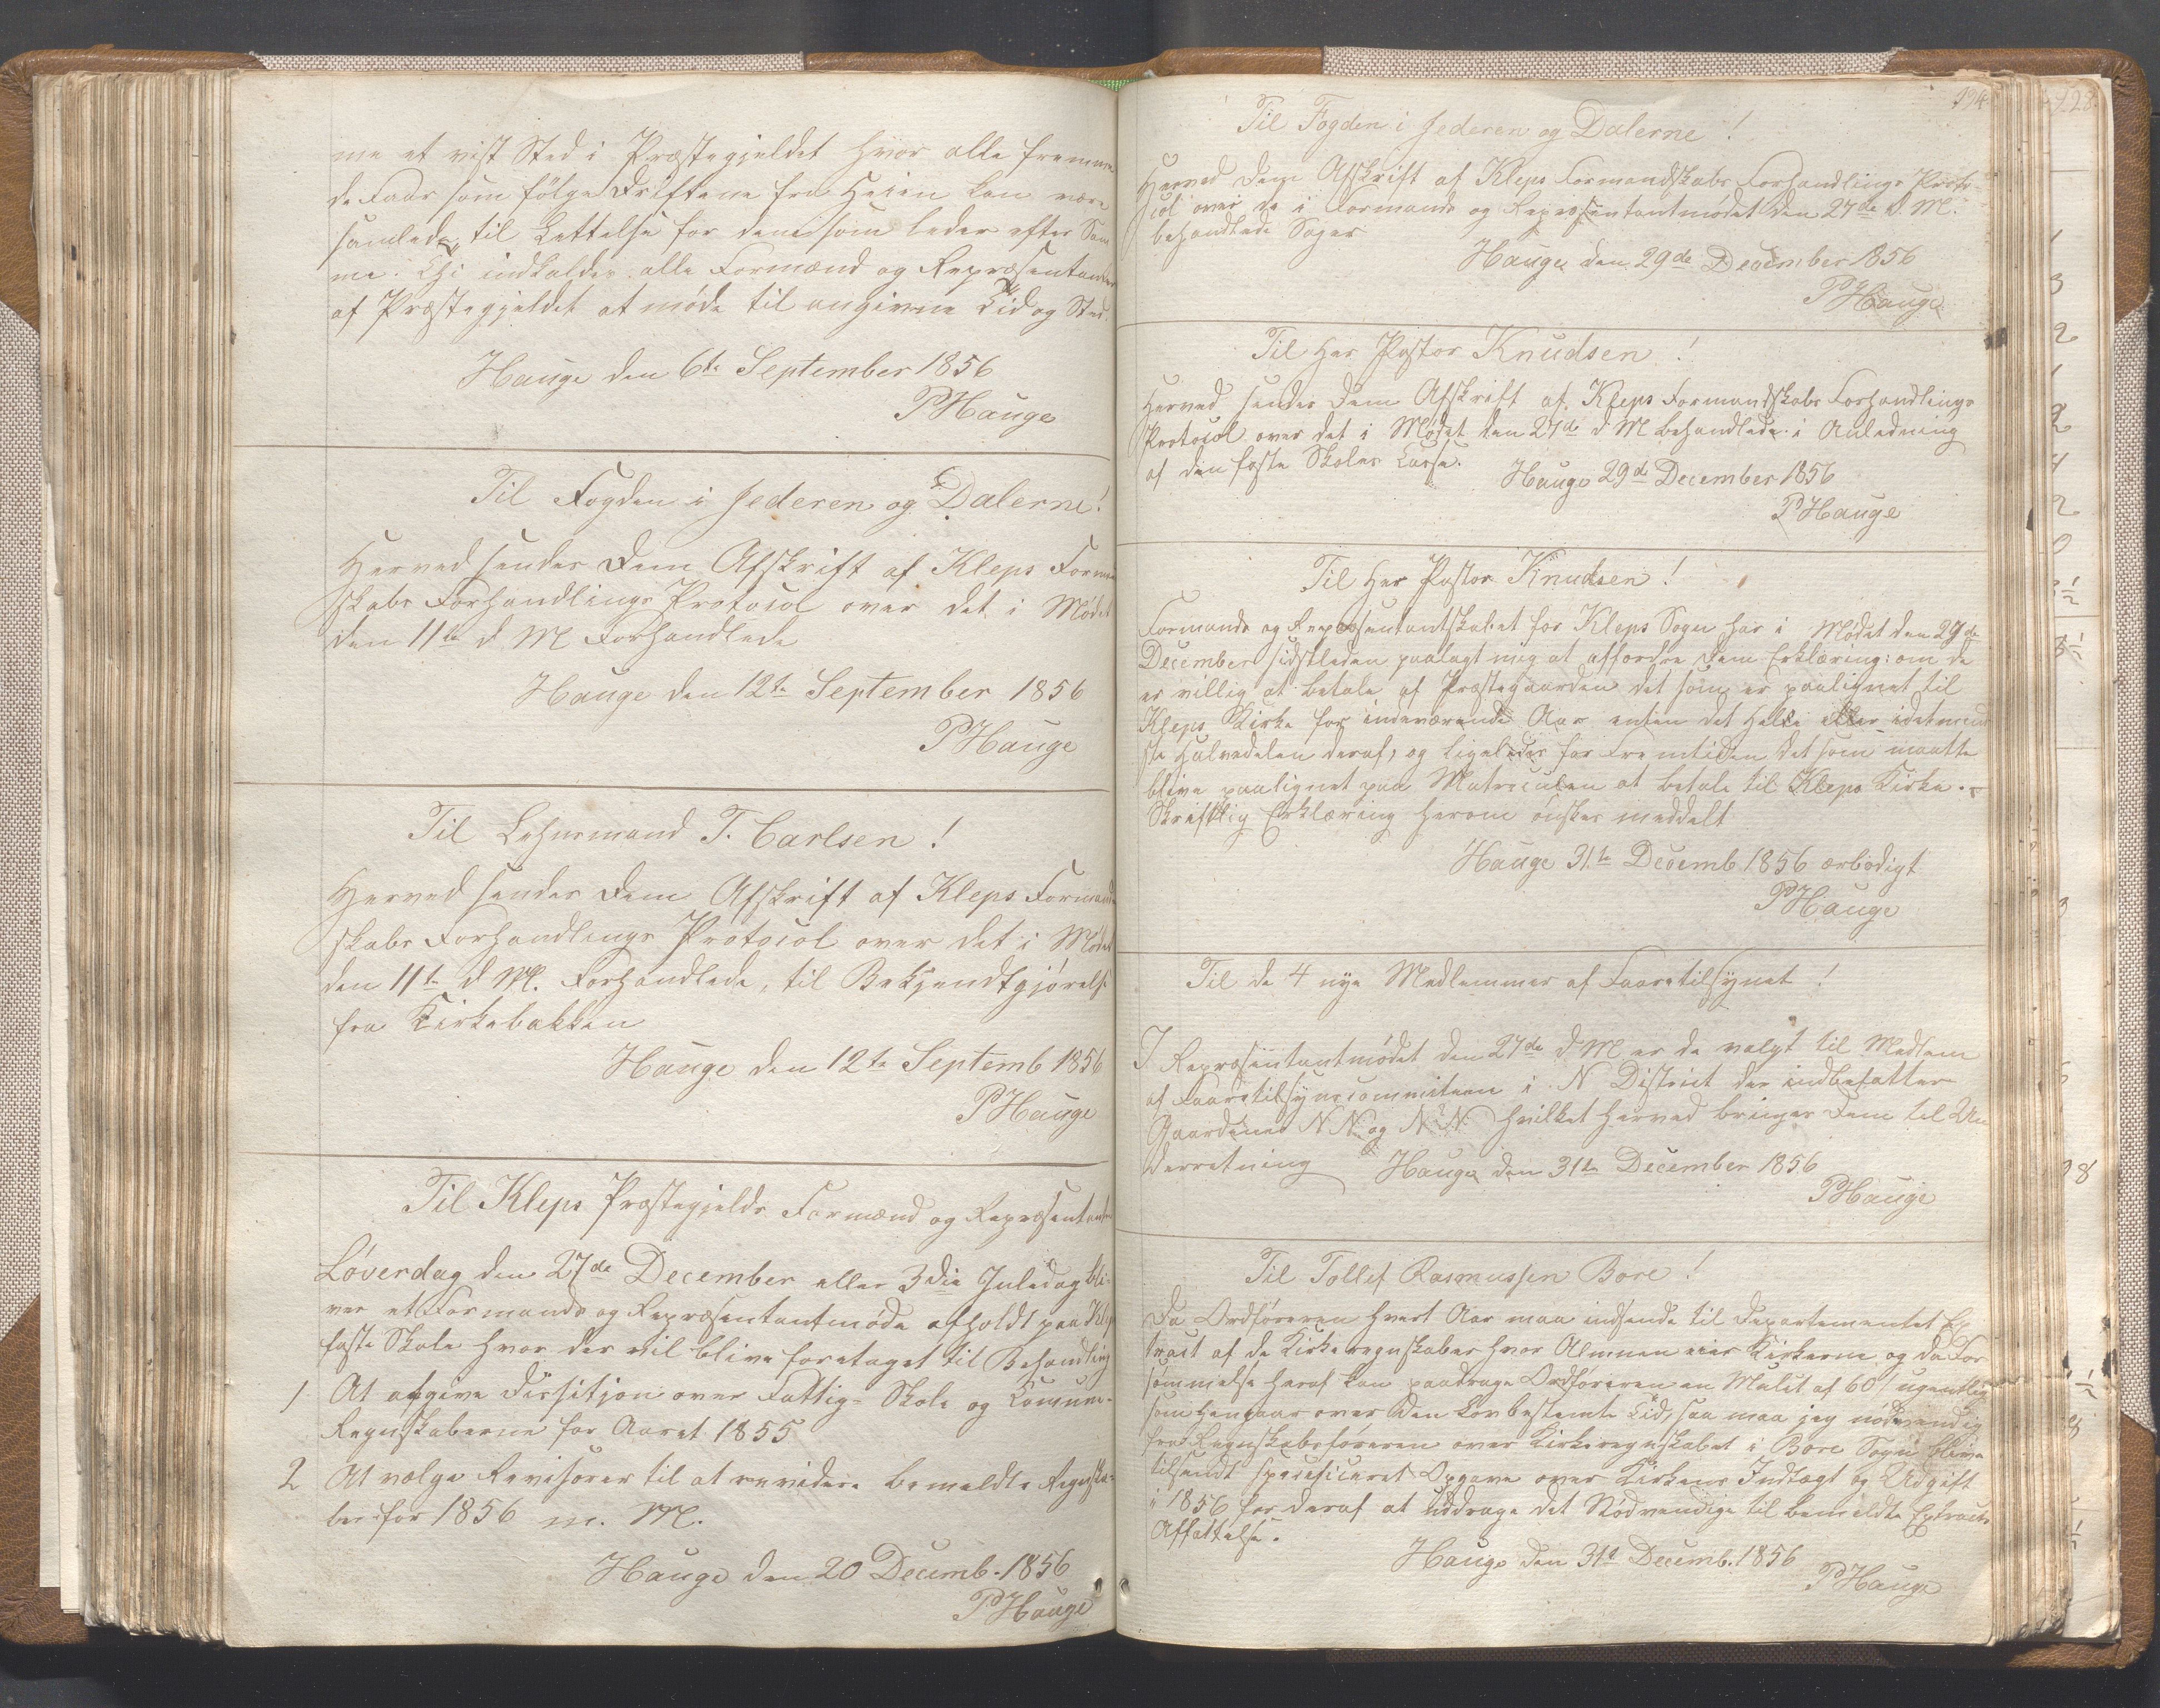 me et vist Sted i Præstegjeldet hvor alle fremme
de Faar som følge Driftene fra Heien kan være
samlede, til Lettelse for dem som leder efter Sam
me. Thi indkaldes alle Formænd og Repræsentanter
af Præstegjeldet at møde til angivne Tid og Sted.
Hauge den 6te September 1856
PHauge
Til Fogden i Jederen og Dalerne!
Herved sendes Dem Afskrift af Kleps Forman
skabs Forhandlings Protocol over det i Mødet
den 11te d M Forhandlede
Hauge den 12te September 1856
PHauge
Til Lehnsmand T. Carlsen!
Herved sendes Dem Afskrift af Kleps Formand
skabs Forhandlings Protocol over det i Mødet
den 11te d M. Forhandlede, til Bekjendtgjørelse
fra Kirkebakken
Hauge den 12te Septemb 1856
PHauge
Til Kleps Præstegjelds Formænd og Repræsentanter
Løverdag den 27de December eller 3die Juledag bli-
ver et Formands og Repræsentantmøde afholdt paa Klep
faste Skole hvor der vil blive foretaget til Behandling
1 At afgive Dessitjon over Fattig- Skole og Comune-
Regnskaberne for Aaret 1855
2 At vælge Revisorer til at revidere bemeldte Regnska-
ber for 1856 m. M.
Hauge den 20 Decemb. 1856
PHauge
194
Til Fogden i Jederen og Dalerne!
Herved Dem Afskrift af Kleps Formandskabs Forhandlings Proto-
col over de i Formands og Repræsentantmødet den 27de d. M.
behandlede Sager
Hauge den 29de December 1856
PHauge
Til Her Pastor Knudsen!
Herved sendes Dem Afskrift af Kleps Formandskabs Forhandlings
Protocol over det i Mødet den 27de d M behandlede i Anledning
af den faste Skoles Casse.
Hauge 29de December 1856
PHauge
Til Her Pastor Knudsen!
Formands og Repræsentantskabet for Kleps Sogn har i Mødet den 27de
December sidstleden paalagt mig at affordre Dem Erklæring: om de
er villig at betale af Præstegaarden det som er paalignet til
Kleps Kirke for indeværende Aar enten det Hele eller idetmind
ste Halvedelen deraf, og ligeledes for Fremtiden det som maatte
blive paalignet paa Matriculen at betale til Kleps Kirke. -
Skriftlig Erklæring herom ønskes meddelt
Hauge 31te Decemb 1856 ærbødigt
PHauge
Til de 4 nye Medlemmer af Faaretilsynet!
I Repræsentantmødet den 27de d M er de valgt til Medlem
af Faaretilsynscommiteen i N District der indbefatter
Gaardene N N og N N hvilket herved bringes Dem til Un
derretning
Hauge den 31te December 1856
PHauge
Til Tollef Rasmussen Bore!
Da Ordføreren hvert Aar maa indsende til Departementet Ex
tract af de Kirkeregnskaber hvor Almuen eier Kirkerne og da For
sømmelse heraf kan paadrage Ordføreren en Mulct af 60 / ugentlig
som hengaar over den Lovbestemte Tid, saa maa jeg nødvendig
fra Regnskabsføreren over Kirkeregnskabet i Bore Sogn blive
tilsendt specificeret Opgave over Kirkens Indtægt og Udgift
i 1856 for deraf at uddrage det Nødvendige til bemeldte Extracts
Affattelse.
Hauge den 31te Decemb. 1856
PHauge